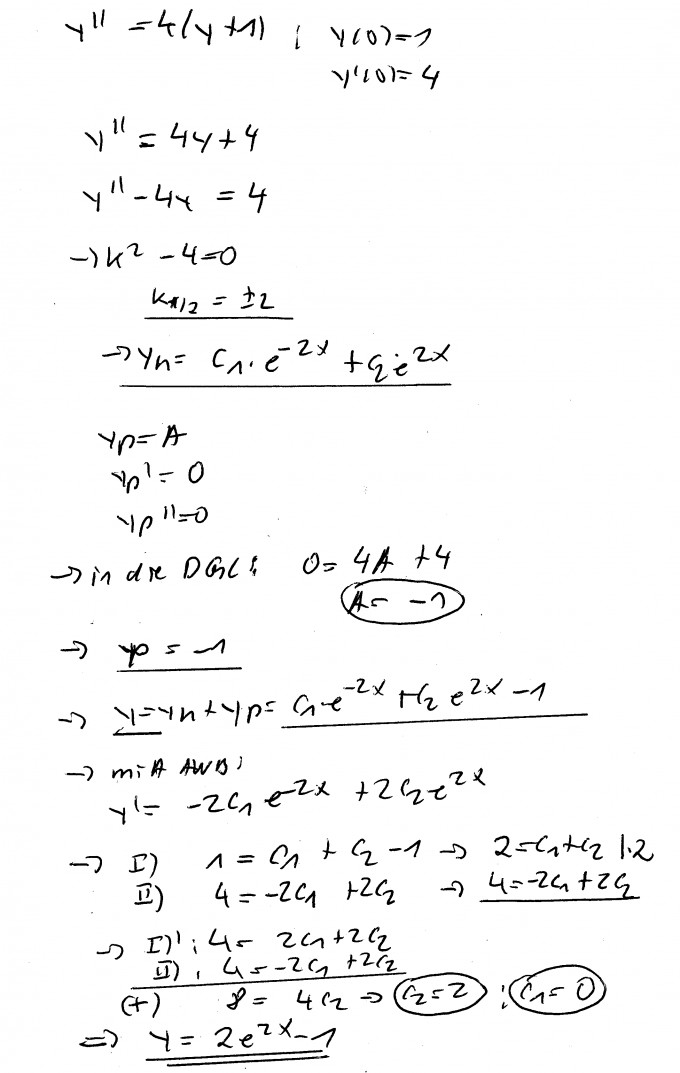 y'' = 4(y+1) ; y(0)=1
y'(0)=4
y'' = 4y+4
y'' - 4y = 4
→ k² - 4=0
k1/2 = ±2
→ yh= C1·e^-2x + C2·e^2x
yp=A
yp'=0
yp''=0
→ in die DGL: 0= 4A +4
A= -1
→ yp = -1
→ y=yh+yp= C1·e^-2x + C2 e^2x -1
→ mit AWB:
y'= -2C1 e^-2x +2C2 e^2x
→ I) 1= C1 + C2 -1 → 2=C1+C2 |·2
II) 4= -2C1 +2C2 → 4=-2C1+2C2
→ I)': 4= 2C1+2C2
II): 4=-2C1 +2C2
(+) 8= 4C2 → C2=2 ; C1=0
⇒ y= 2e^2x-1